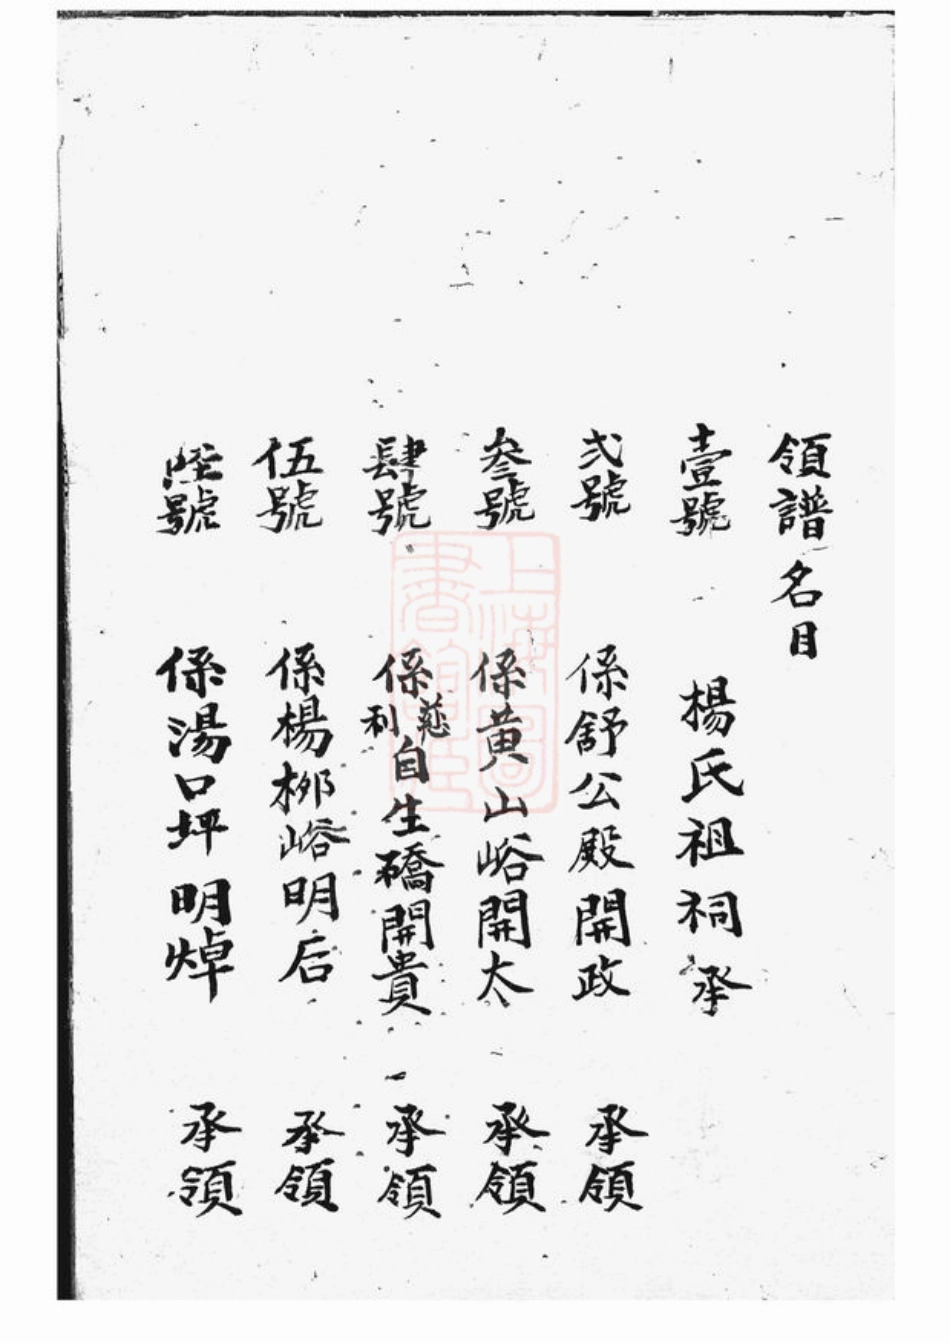 領譜名目
壹號 楊氏祖祠承
弍號 係舒公殿開政 承領
叄號 係黄山峪開太 承領
肆號 係慈利自生礄開貴 承領
伍號 係楊柳峪明后 承領
陸號 係湯口坪明焯 承領
上海圖書館藏